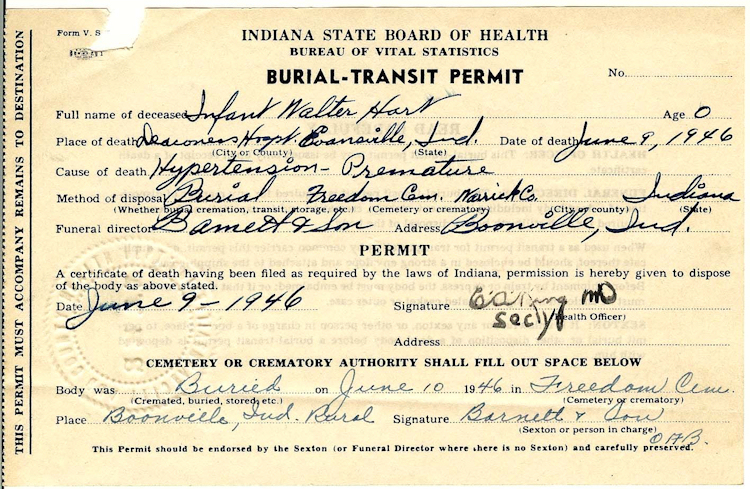 THIS PERMIT MUST ACCOMPANY REMAINS TO DESTINATION
Form V. S
INDIANA STATE BOARD OF HEALTH
BUREAU OF VITAL STATISTICS
BURIAL-TRANSIT PERMIT
No.
Full name of deceased Infant Walter Hart Age 0
Place of death Deaconess Hospt. Evansville, Ind. Date of death June 9, 1946
(City or County) (State)
Cause of death Hypertension - Premature
Method of disposal Burial Freedom Cem. Warrick Co. Indiana
(Whether burial cremation, transit, storage, etc.) (Cemetery or crematory) (City or county) (State)
Funeral director Barnett & Son Address Boonville, Ind.
PERMIT
A certificate of death having been filed as required by the laws of Indiana, permission is hereby given to dispose
of the body as above stated.
Date June 9 - 1946 Signature MD
Secty (Health Officer)
Address
CEMETERY OR CREMATORY AUTHORITY SHALL FILL OUT SPACE BELOW
Body was Buried on June 10 1946 in Freedom Cem.
(Cremated, buried, stored, etc.) (Cemetery or crematory)
Place Boonville, Ind. Rural Signature Barnett & Son
(Sexton or person in charge)
This Permit should be endorsed by the Sexton (or Funeral Director where there is no Sexton) and carefully preserved.